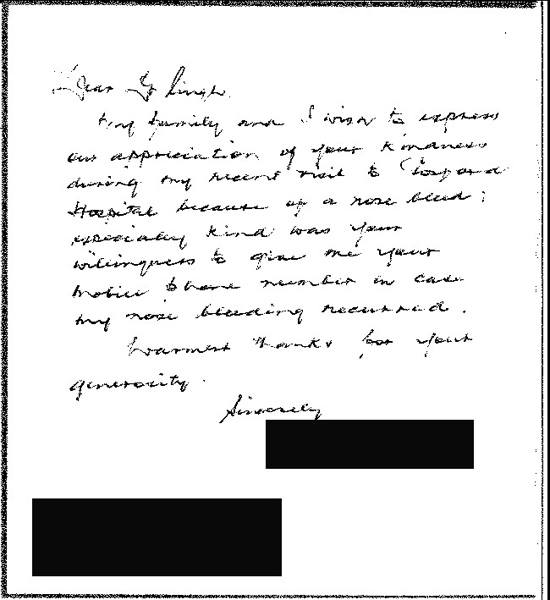 Dear Dr Singh.
My family and I wish to express
our appreciation of your kindness
during my recent visit to Gosford
Hospital because of a nose bleed;
especially kind was your
willingness to give me your
mobile phone number in case
my nose bleeding recurred.
Warmest thanks for your
generosity.
Sincerely